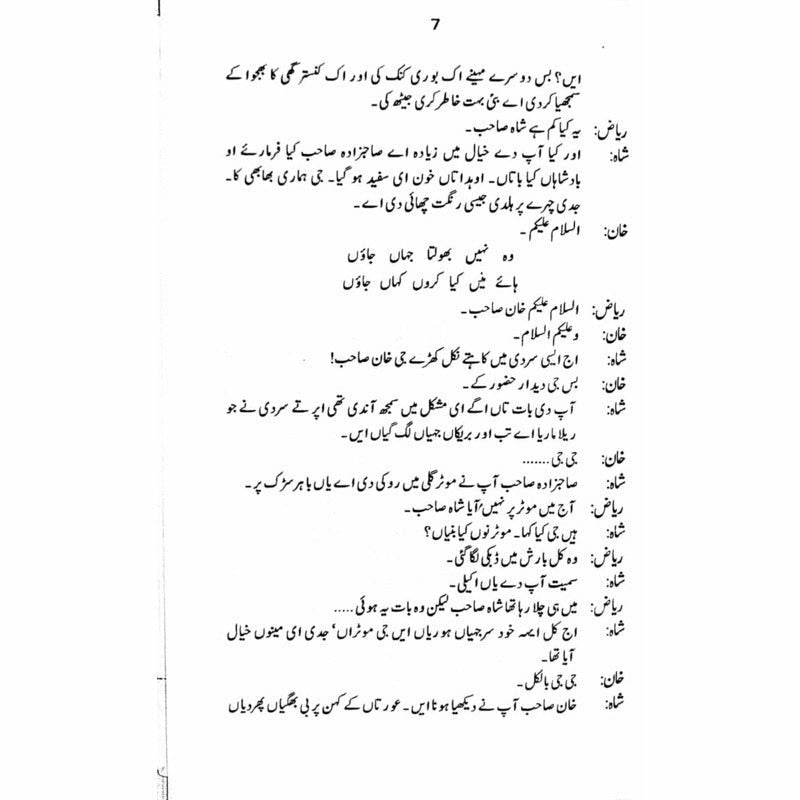 7
ایں؟ بس دوسرے مہینے اک بوری کنک کی اور اک کنستر گھی کا بھجوا کے
سمجھیا کر دی اے بئی بہت خاطر کری جیٹھ کی۔
ریاض: یہ کیا کم ہے شاہ صاحب۔
شاہ: اور کیا آپ دے خیال میں زیادہ اے صاجزادہ صاحب کیا فرمارئے او
بادشاہاں کیا باتاں۔ اوہدا تاں خون ای سفید ہو گیا۔ جی ہماری بھابھی کا۔
جدی چہرے پر ہلدی جیسی رنگت چھائی دی اے۔
خان: السلام علیکم۔
وہ نہیں بھولتا جہاں جاؤں
ہائے میں کیا کروں کہاں جاؤں
ریاض: السلام علیکم خان صاحب۔
خان: وعلیکم السلام۔
شاہ: اج ایسی سردی میں کاہتے نکل کھڑے جی خان صاحب!
خان: بس جی دیدار حضور کے۔
شاہ: آپ دی بات تاں اگے ای مشکل میں سمجھ آندی تھی اپر تے سردی نے جو
ریلا ماریا اے تب اور بریکاں جہیاں لگ گیاں ایں۔
خان: جی جی.......
شاہ: صاجزادہ صاحب آپ نے موٹر گلی میں روکی دی اے یاں باہر سڑک پر۔
ریاض: آج میں موٹر پر نہیں آیا شاہ صاحب۔
شاہ: ہیں جی کیا کہا۔ موٹر نوں کیا بنیاں؟
ریاض: وہ کل بارش میں ڈبکی لگا گئی۔
شاہ: سمیت آپ دے یاں اکیلی۔
ریاض: میں ہی چلا رہا تھا شاہ صاحب لیکن وہ بات یہ ہوئی.....
شاہ: اج کل ایہہ خود سرجہیاں ہو ریاں ایں جی موٹراں‘ جدی ای مینوں خیال
آیا تھا۔
خان: جی جی بالکل۔
شاہ: خان صاحب آپ نے دیکھیا ہونا ایں۔ عورتاں کے کہن پر بی بھگیاں پھر دیاں